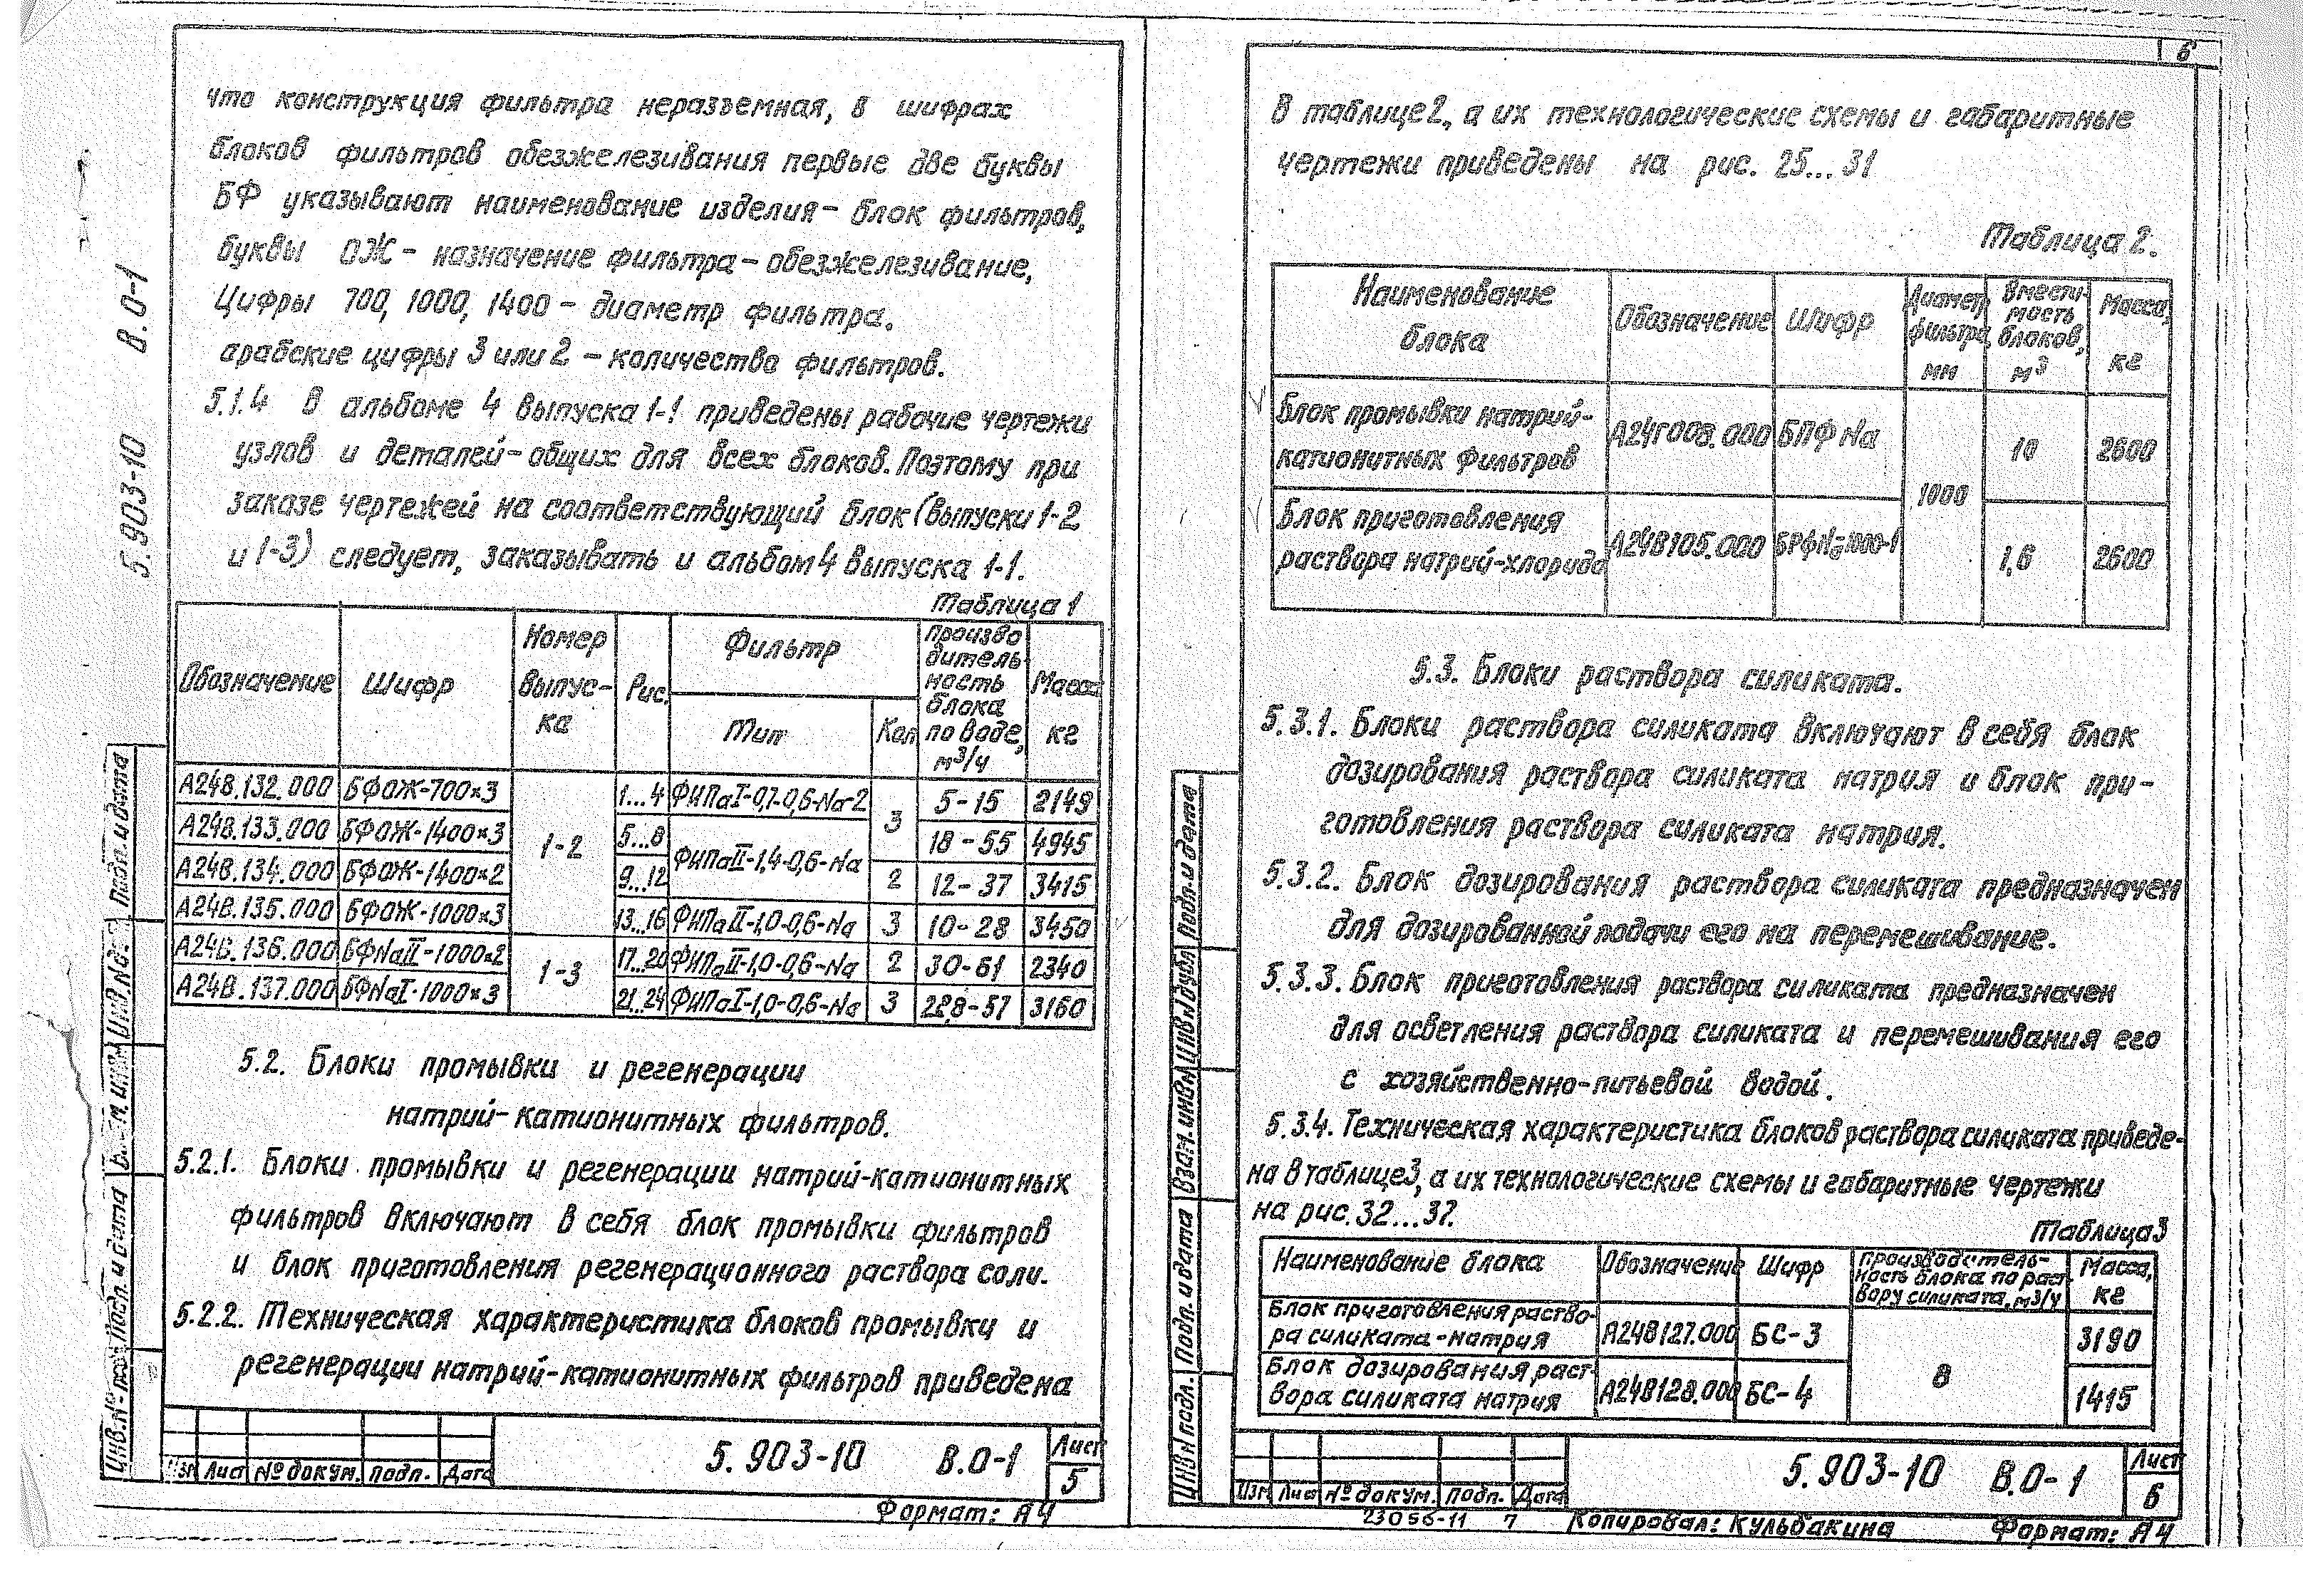 что конструкция фильтра неразъемная, в шифрах
блоков фильтров обезжелезивания первые две буквы
БФ указывают наименование изделия – блок фильтров,
буквы ОЖ – назначение фильтра – обезжелезивание,
Цифры 700, 1000, 1400 – диаметр фильтра.
арабские цифры 3 или 2 – количество фильтров.
5.1.4 В альбоме 4 выпуска 1-1 приведены рабочие чертежи
узлов и деталей – общих для всех блоков. Поэтому при
заказе чертежей на соответствующий блок (выпуски 1-2
и 1-3) следует, заказывать и альбом 4 выпуска 1-1.
Таблица 1
Обозначение Шифр Номер выпус-ка Рис. Фильтр Тип Кол. Произво дитель-ность блока по воде, м3/ч Масса кг
А248.132.000 БФОЖ-700×3 1-2 1...4 ФИПаI-0,7-0,6-Na-2 3 5-15 2149
А248.133.000 БФОЖ-1400×3 5...8 ФИПаII-1,4-0,6-Na 18-55 4945
А248.134.000 БФОЖ-1400×2 9...12 2 12-37 3415
А248.135.000 БФОЖ-1000×3 13...16 ФИПаII-1,0-0,6-Na 3 10-28 3450
А248.136.000 БФNaII-1000×2 1-3 17...20 ФИПаII-1,0-0,6-Na 2 30-61 2340
А248.137.000 БФNaI-1000×3 21...24 ФИПаI-1,0-0,6-Na 3 22,8-57 3160
5.2. Блоки промывки и регенерации
натрий-катионитных фильтров.
5.2.1. Блоки промывки и регенерации натрий-катионитных
фильтров включают в себя блок промывки фильтров
и блок приготовления регенерационного раствора соли.
5.2.2. Техническая характеристика блоков промывки и
регенерации натрий-катионитных фильтров приведена
Изм Лист № докум. Подп. Дата
5.903-10 В.0-1
Лист
5
Формат: А4
5.903-10 В.0-1
Подп. и дата
Подп. и дата
6
В таблице 2, а их технологические схемы и габаритные
чертежи приведены на рис. 25...31
Таблица 2.
Наименование блока Обозначение Шифр Диаметр фильтра, мм Вмести-мость блоков, м3 Масса, кг
Блок промывки натрий-
катионитных фильтров А24Г008.000 БПФNa 1000 10 2600
Блок приготовления
раствора натрий-хлорида А248105.000 БРФNa-1000-1 1,6 2600
5.3. Блоки раствора силиката.
5.3.1. Блоки раствора силиката включают в себя блок
дозирования раствора силиката натрия и блок при-
готовления раствора силиката натрия.
5.3.2. Блок дозирования раствора силиката предназначен
для дозированной подачи его на перемешивание.
5.3.3. Блок приготовления раствора силиката предназначен
для осветления раствора силиката и перемешивания его
с хозяйственно-питьевой водой.
5.3.4. Техническая характеристика блоков раствора силиката приведе-
на в таблице3, а их технологические схемы и габаритные чертежи
на рис. 32...37.
Таблица3
Наименование блока Обозначение Шифр Производитель-ность блока по раст-вору силиката, м3/ч Масса, кг
Блок приготовления раство-
ра силиката-натрия А248127.000 БС-3 8 3190
Блок дозирования раст-
вора силиката натрия А248128.000 БС-4 1415
Изм Лист № докум. Подп. Дата
5.903-10 В.0-1
Лист
6
23056-11 7 Копировал: Кульбакина Формат: А4
Инв.№ подл. Подп. и дата Взам. инв.№ Инв.№ дубл Подп. и дата